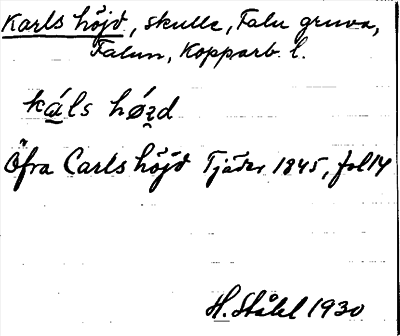 Karls höjd, skulle, Falu gruva,
Falun, Kopparb. l.
káls hǿzd
Öfra Carls höjd Tjäder 1845, fol 14
H. Ståhl 1930